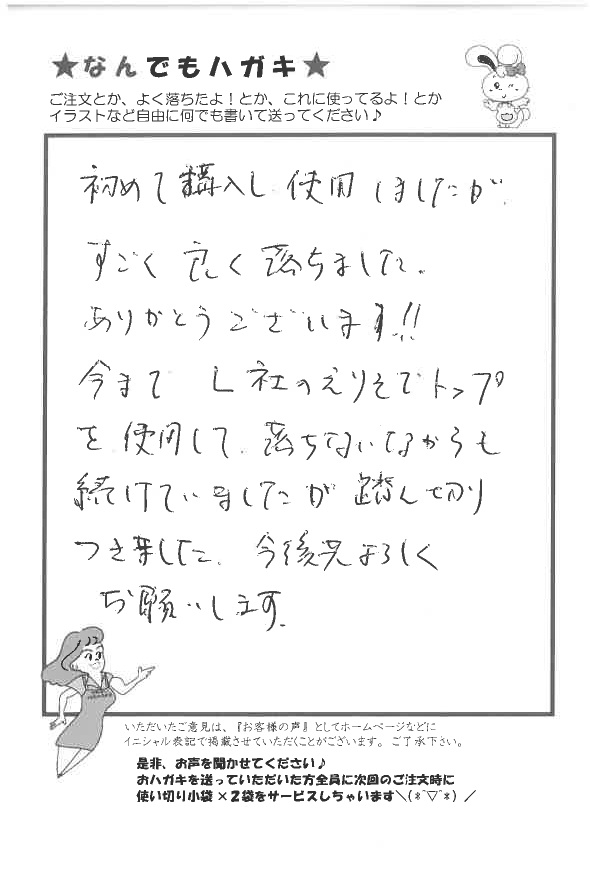 ★なんでもハガキ★
ご注文とか、よく落ちたよ！とか、これに使ってるよ！とか
イラストなど自由に何でも書いて送ってください♪
初めて購入し使用しましたが、
すごく良く落ちました。
ありがとうございます!!
今まで L社のえりそでトップ
を使用して、落ちないながらも
続けていましたが踏ん切り
つきました。今後共よろしく
お願いします。
いただいたご意見は、『お客様の声』としてホームページなどに
イニシャル表記で掲載させていただくことがございます。ご了承下さい。
是非、お声を聞かせてください♪
おハガキを送っていただいた方全員に次回のご注文時に
使い切り小袋×2袋をサービスしちゃいます＼(*^▽^*)／